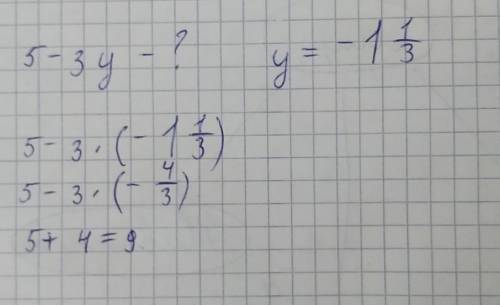 5 - 3y - ? y = - 1 1/3
5 - 3 · (- 1 1/3)
5 - 3 · (- 4/3)
5 + 4 = 9